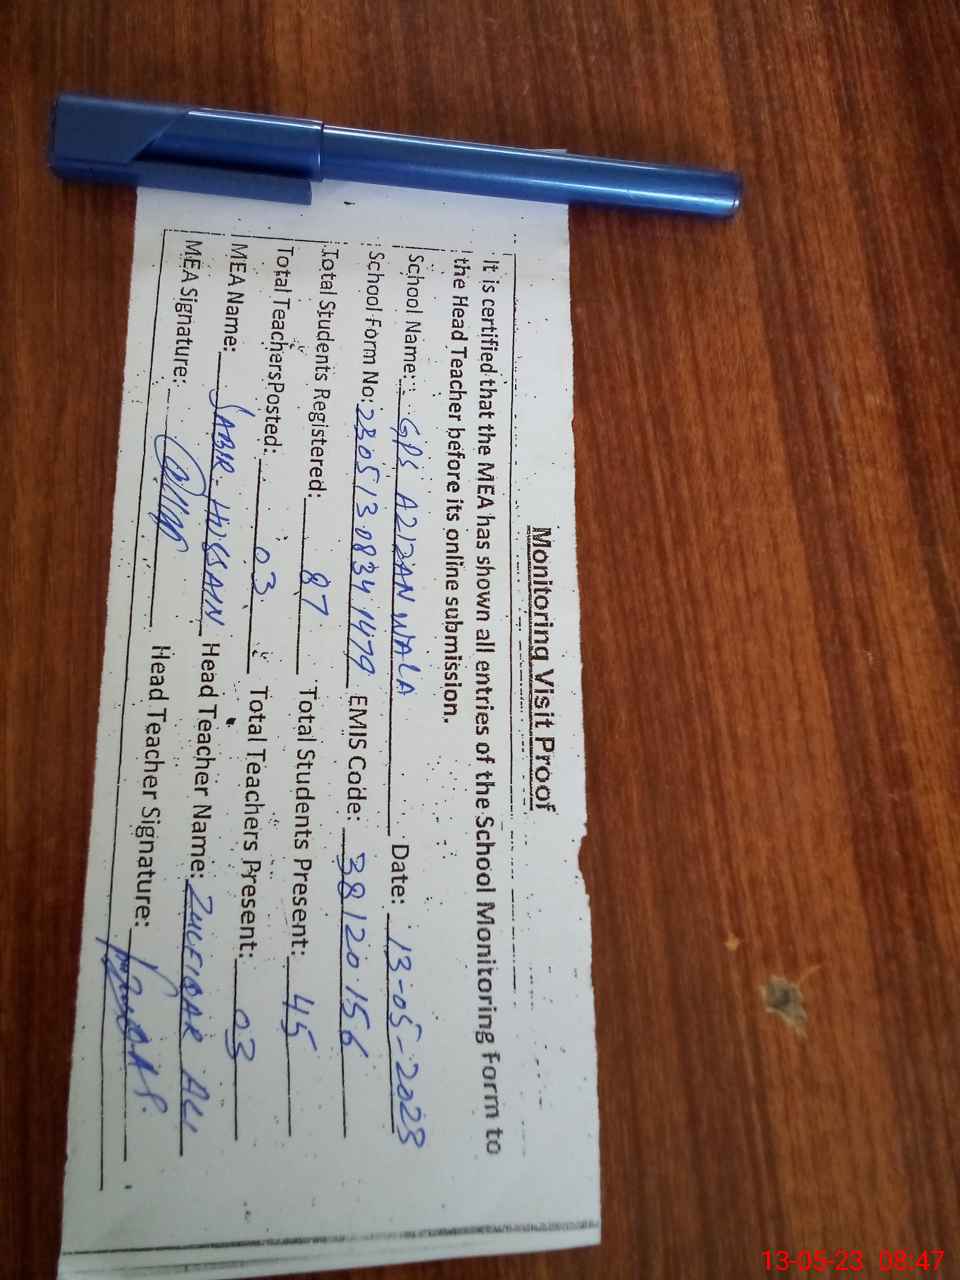 Monitoring Visit Proof
It is certified that the MEA has shown all entries of the School Monitoring Form to
the Head Teacher before its online submission.
School Name: GPS AZIZAN WALA Date: 13-05-2023
School Form No: 23051308341479 EMIS Code: 38120156
Total Students Registered: 87 Total Students Present: 45
Total TeachersPosted: 03 Total Teachers Present: 03
MEA Name: SABIR-HUSSAIN Head Teacher Name: ZULFIQAR ALI
MEA Signature: Head Teacher Signature:
13-05-23 08:47